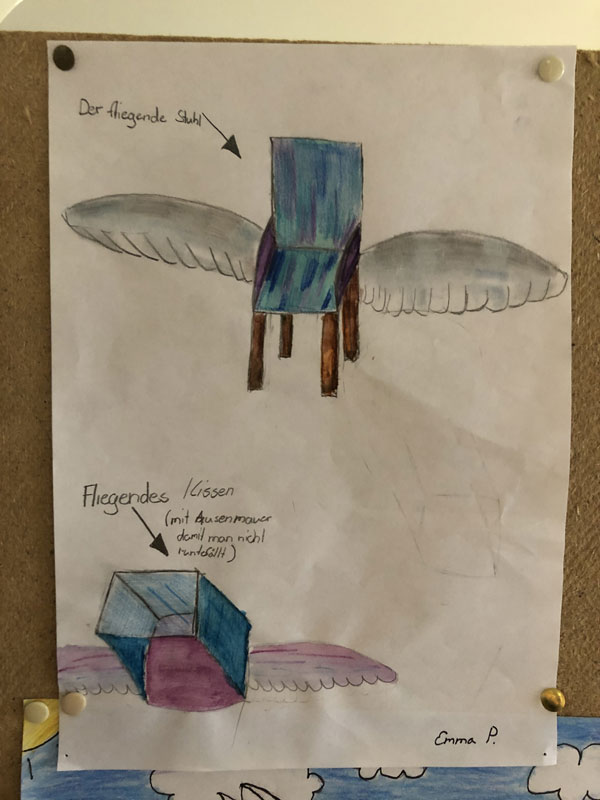 Der fliegende Stuhl
Fliegendes Kissen
(mit Ausenmauer
damit man nicht
runtefällt)
Emma P.